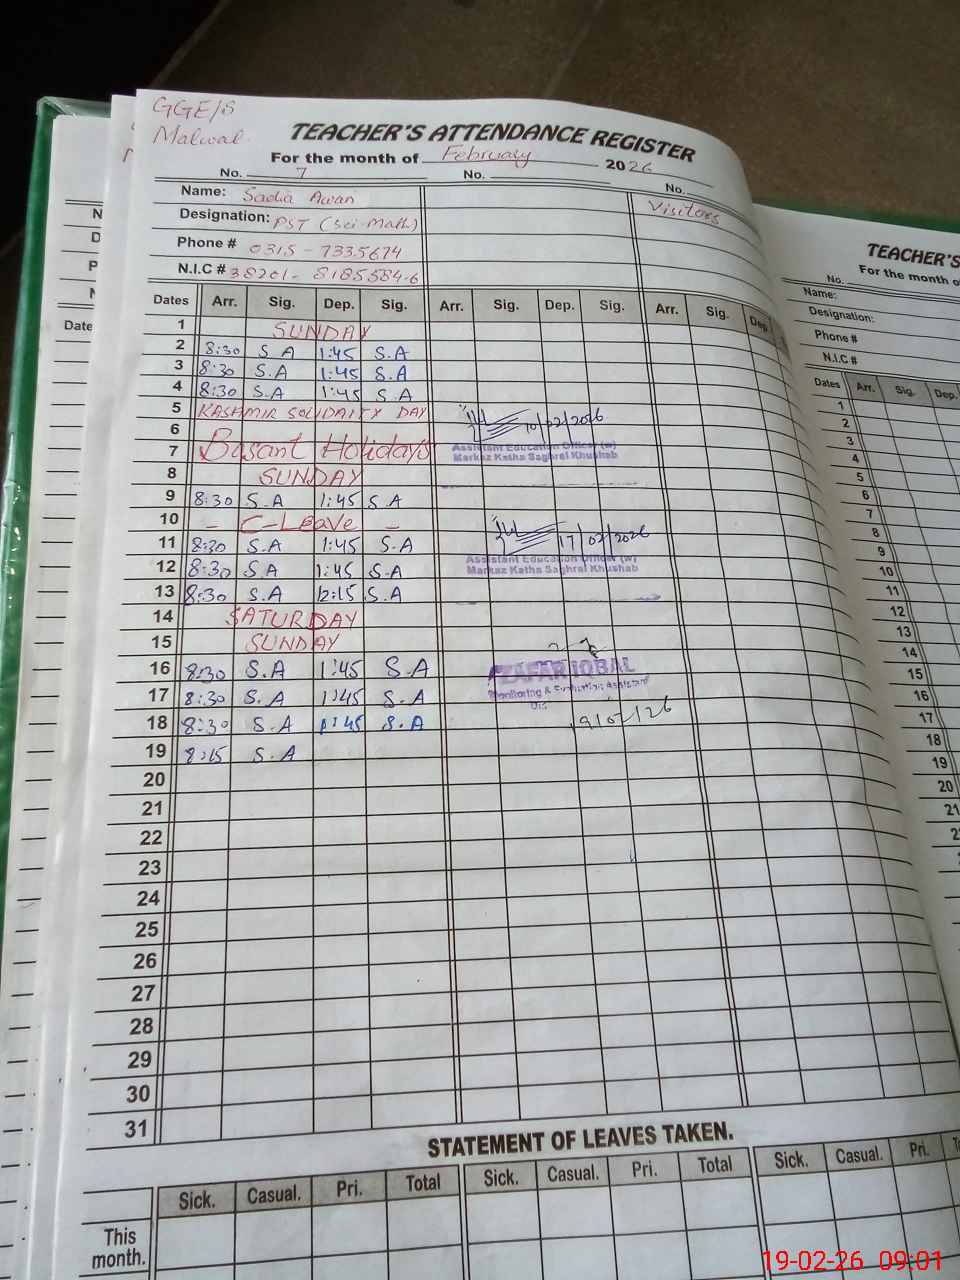 GGE/S
Malwal
TEACHER'S ATTENDANCE REGISTER
For the month of February 2026
No. 7 No. No.
Name: Sadia Awan Visitors
Designation: PST (Sci-Math)
Phone # 0315-7335674
N.I.C # 38201-8185584-6
Dates Arr. Sig. Dep. Sig. Arr. Sig. Dep. Sig. Arr. Sig. Dep
1 SUNDAY
2 8:30 S A 1:45 S.A
3 8:30 S.A 1:45 S.A
4 8:30 S.A 1:45 S.A
5 KASHMIR SOLIDAITY DAY 10/02/2026
6
7 Basant Holidays Assistant Education Officer (w)
Markaz Katha Saghral Khushab
8 SUNDAY
9 8:30 S.A 1:45 S A
10 - C-Leave -
11 8:30 S.A 1:45 S.A 17/02/2026
12 8:30 S.A 1:45 S.A Assistant Education Officer (w)
Markaz Katha Saghral Khushab
13 8:30 S.A 12:15 S.A
14 SATURDAY
15 SUNDAY
16 8:30 S.A 1:45 S.A ZAFAR IQBAL
Monitoring & Evaluation Assistant
17 8:30 S.A 1:45 S.A
18 8:30 S.A 1:45 S.A 19/02/26
19 8:15 S.A
20
21
22
23
24
25
26
27
28
29
30
31
STATEMENT OF LEAVES TAKEN.
Sick. Casual. Pri. Total Sick. Casual. Pri. Total Sick. Casual. Pri.
This
month.
TEACHER'S
For the month
No.
Name:
Designation:
Phone #
N.I.C #
Dates Arr. Sig. Dep.
1
2
3
4
5
6
7
8
9
10
11
12
13
14
15
16
17
18
19
20
21
Date
19-02-26 09:01